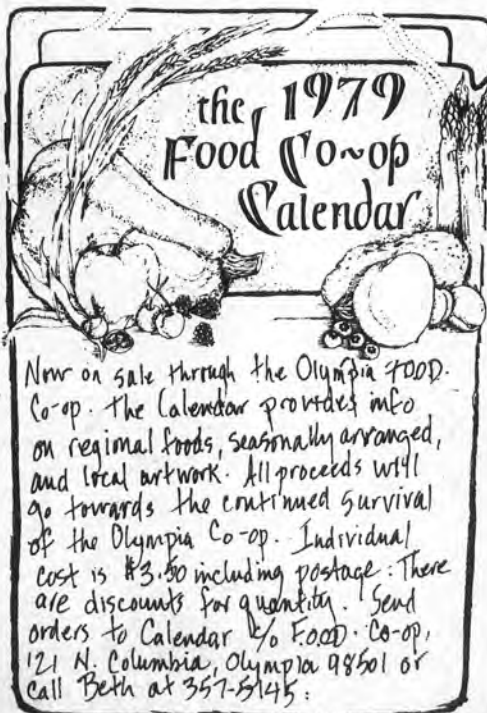 the 1979
Food Co~op
Calendar
Now on sale through the Olympia FOOD.
Co-op. the Calendar provides info
on regional foods, seasonally arranged,
and local artwork. All proceeds will
go towards the continued survival
of the Olympia Co-op. Individual
cost is $3.50 including postage: There
are discounts for quantity. Send
orders to Calendar c/o F.O.O.D. Co-op,
121 N. Columbia, Olympia 98501 or
call Beth at 357-5145: